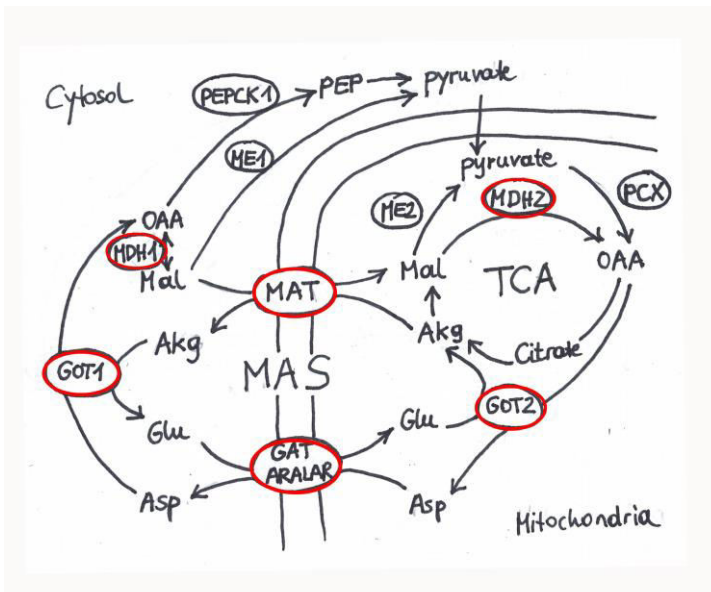 Cytosol
PEPCK1
PEP
pyruvate
ME1
pyruvate
PCX
ME2
MDH2
OAA
MDH1
Mal
MAT
Mal
TCA
OAA
Akg
Akg
Citrate
GOT1
MAS
GOT2
Glu
Glu
GAT
ARALAR
Asp
Asp
Mitochondria